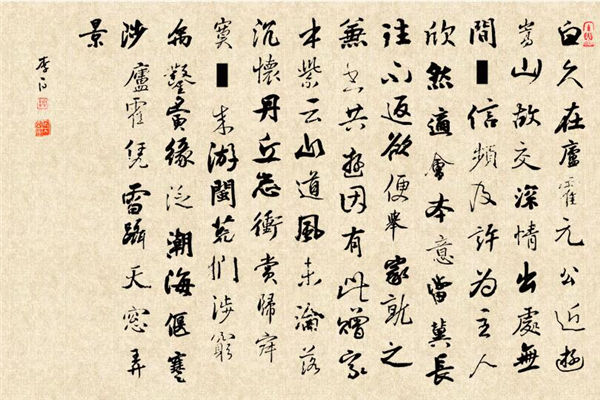 白久在廬霍元公近遊
嵩山故交深情出處無
間▮信頻及許為主人
欣然適會本意當冀長
往不返欲便舉家就之
兼書共遊因有此贈家
本紫云山道風未淪落
沉懷丹丘志衝賞歸寂
寞▮來游閩荒們涉窮
禹鑿夤緣泛潮海偃蹇
陟廬霍凭雷躡天窓弄
景
李白